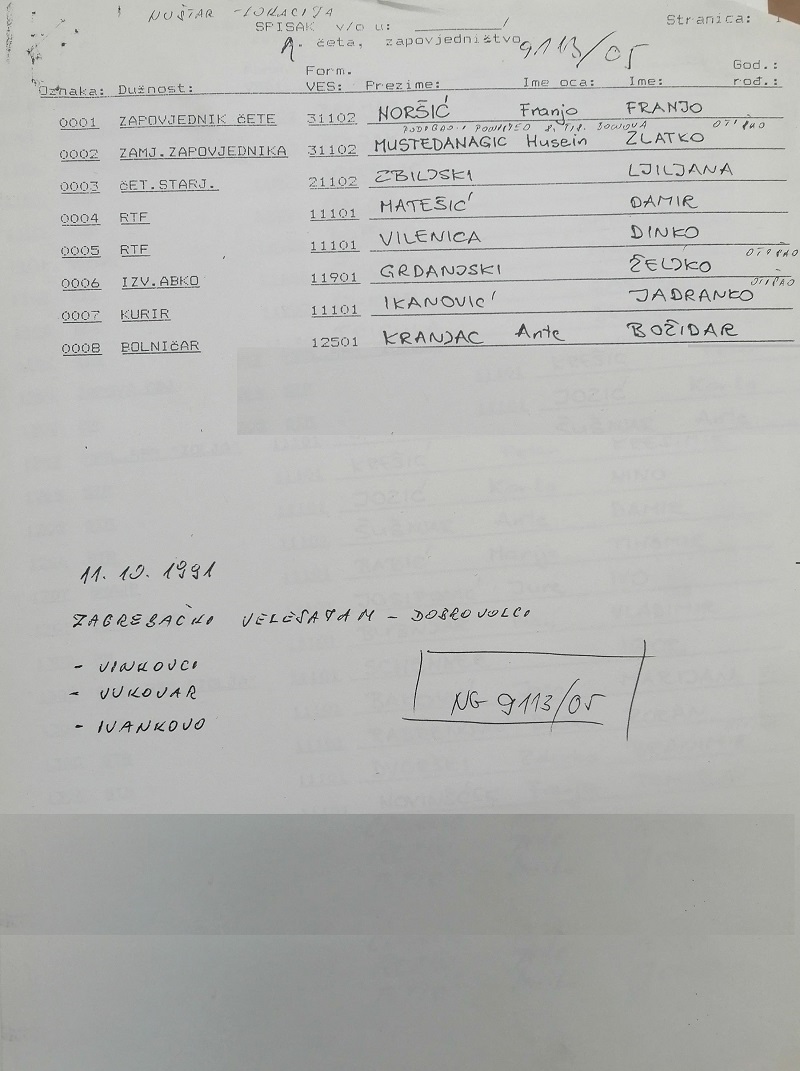 NUŠTAR - LOKACIJA
Stranica: 1
SPISAK v/o u: ________/
A. četa, zapovjedništvo 9113/05
Form. God.:
Oznaka: Dužnost: VES: Prezime: Ime oca: Ime: rođ.:
0001 ZAPOVJEDNIK čETE 31102 NORŠIĆ Franjo FRANJO
OTIŠAO
0002 ZAMJ.ZAPOVJEDNIKA 31102 MUSTEDANAGIC Husein ZLATKO
0003 čET.STARJ. 21102 ZBILJSKI LJILJANA
0004 RTF 11101 MATEŠIĆ DAMIR
0005 RTF 11101 VILENICA DINKO
OTIŠAO
0006 IZV.ABKO 11901 GRDANJSKI ŽELJKO
OTIŠAO
0007 KURIR 11101 IKANOVIĆ JADRANKO
0008 BOLNIčAR 12501 KRANJAC Ante BOŽIDAR
11.10.1991
ZAGREBAČKI VELESAJAM - DOBROVOLCI
- VINKOVCI
- VUKOVAR
- IVANKOVO
NG 9113/05